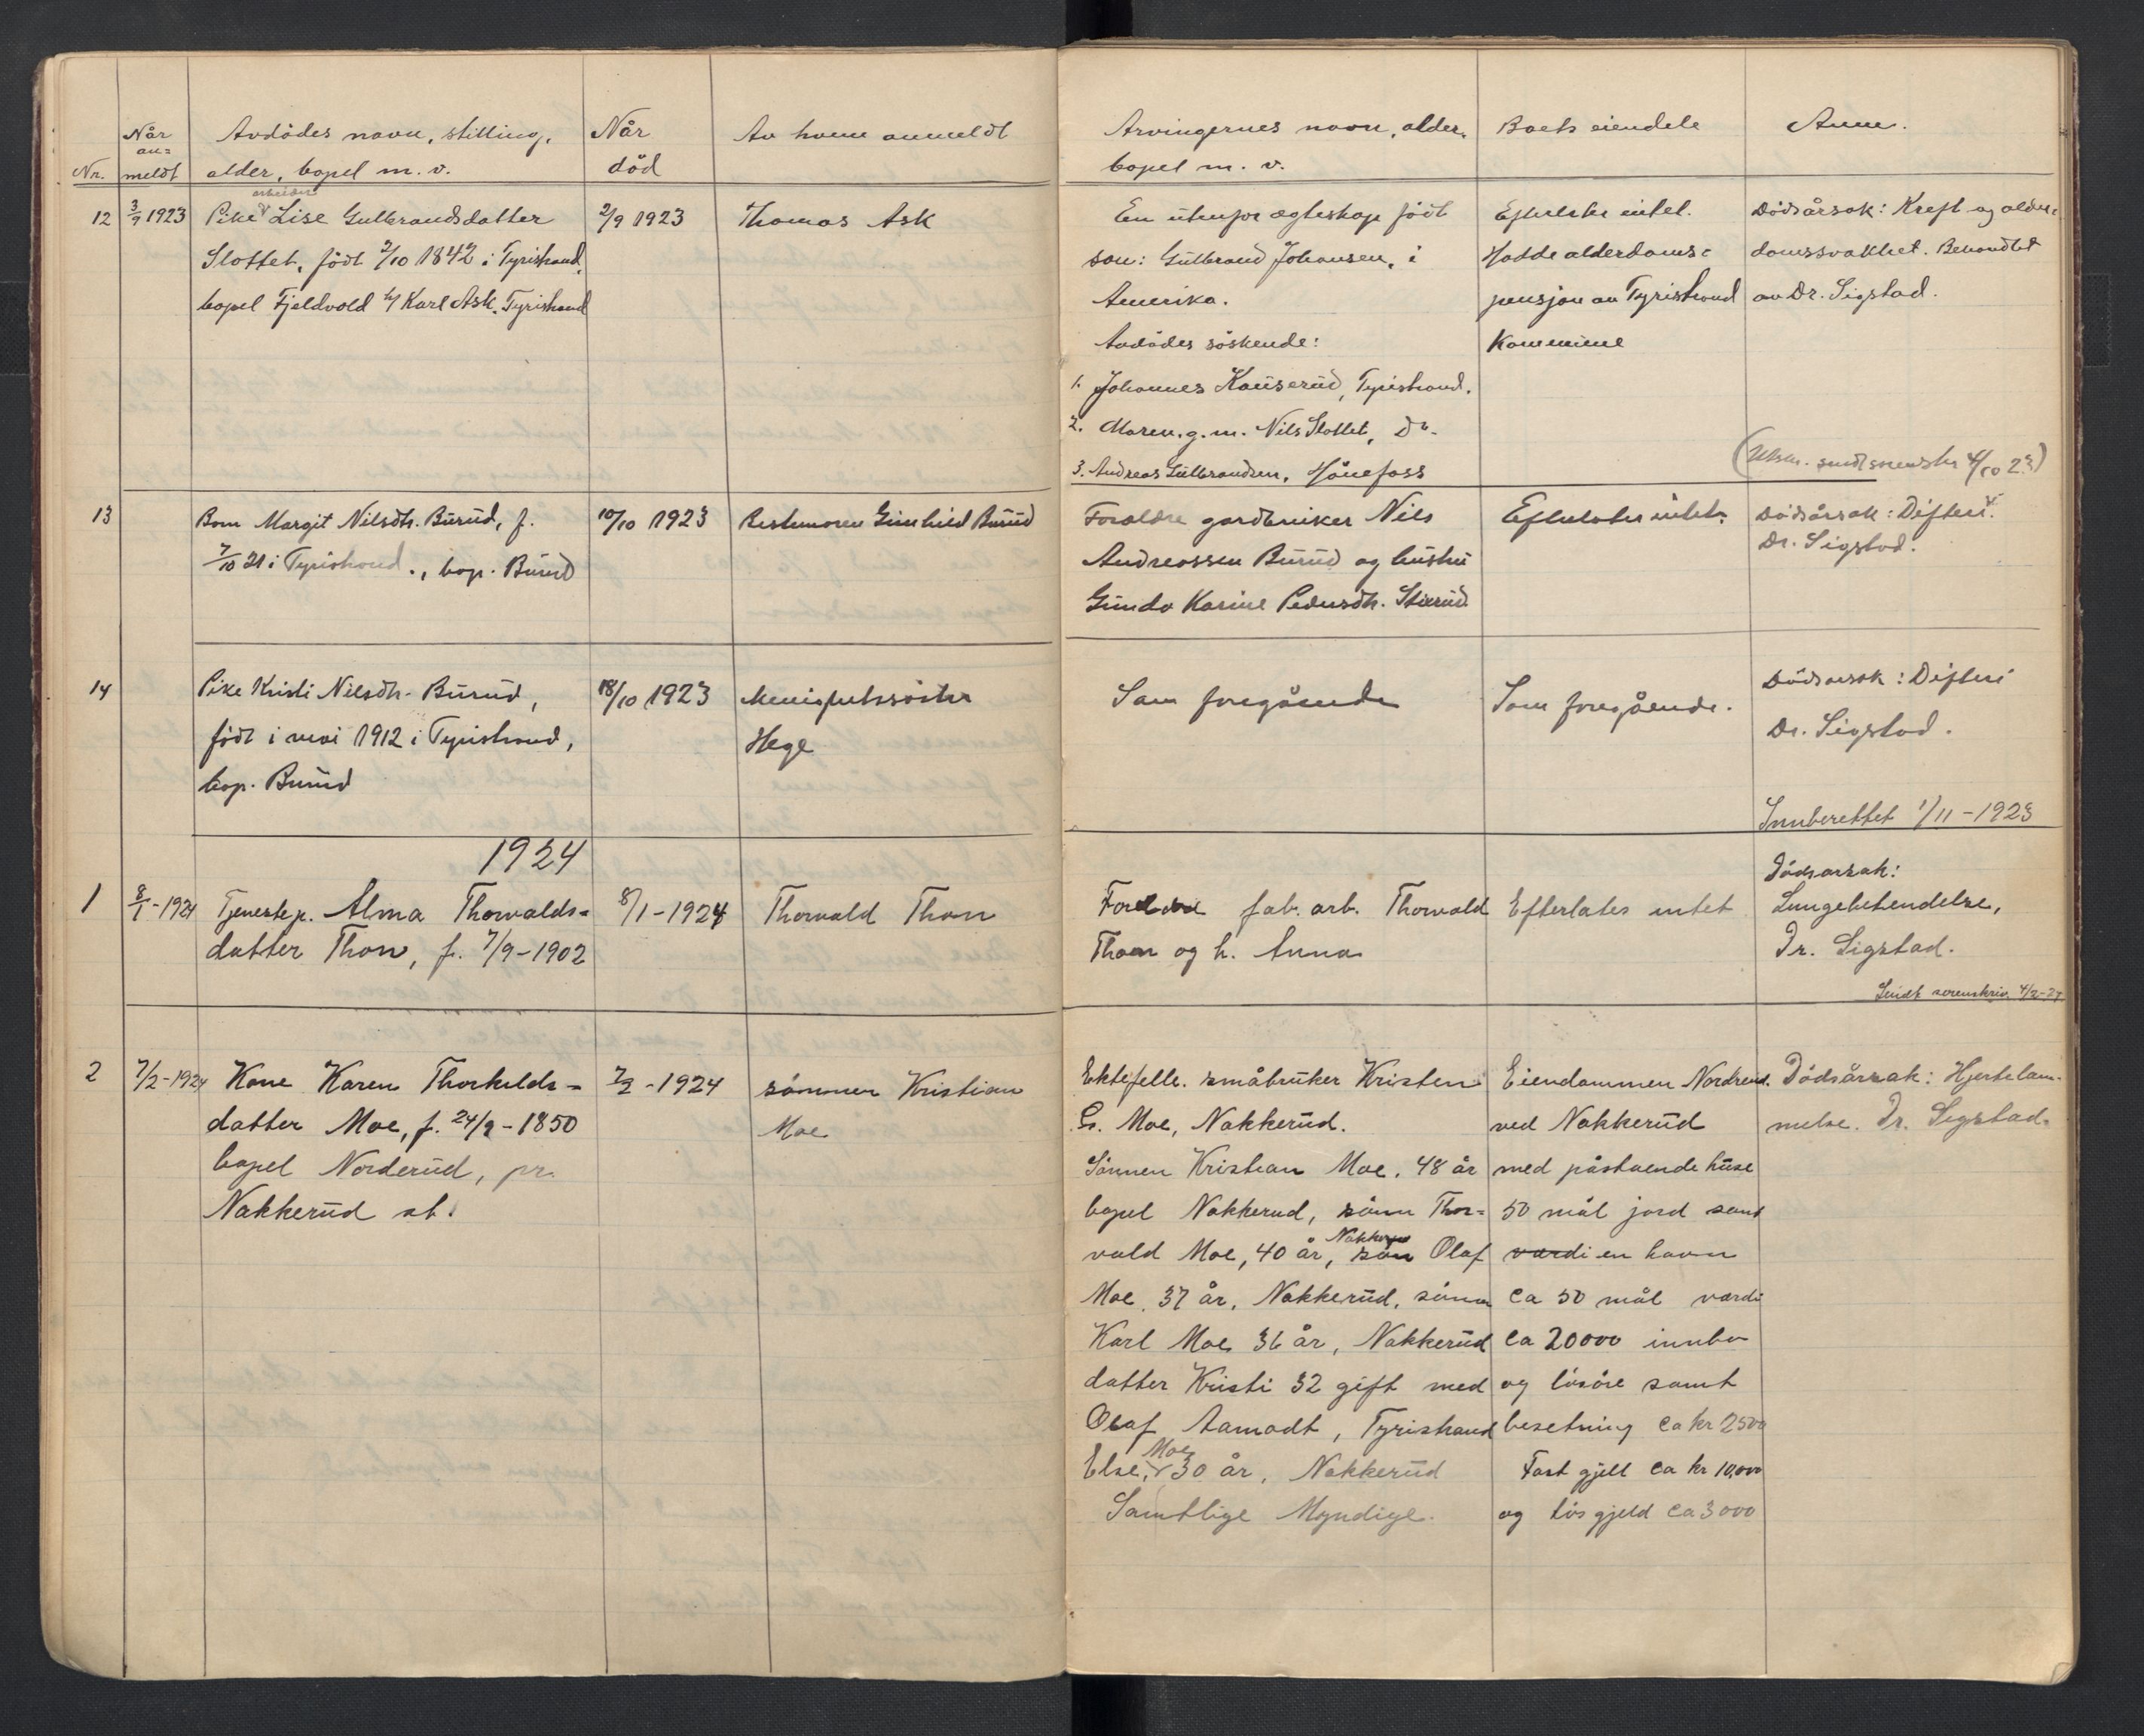 Nr.
Når an=meldt
Avdödes navn, stilling,
alder, bopel m. v.
Når
död
Av hvem anmeldt
Arvingernes navn, alder,
bopel m. v.
Boets eiendele
Anm.
12
3/9 1923
arbeider
Pike Lise Gulbrandsdatter
Slottet, födt 2/10 1842 i Tyristrand,
bopel Fjeldvold h/ Karl Ask, Tyristrand
2/9 1923
Thomas Ask
En utenfor ægteskap födt
sön: Gulbrand Johansen, i
Amerika.
Avdödes söskende:
1. Johannes Kauserud, Tyristrand.
2. Maren g. m. Nils Slottet, Do.
3. Andreas Gulbrandsen, Hönefoss
Efterlater intet.
Hadde alderdoms=
pensjon av Tyristrand
Kommune
Dödsårsak: Kreft og alder=
domssvakhet. Behandlet
av Dr. Sigstad.
(Utskr. sendt sorenskr. 4/10 23)
13
Barn Margit Nilsdtr. Burud, f.
7/10 21 i Tyristrand., bop. Burud
10/10 1923
Bestemoren Gunhild Burud
Foreldre gardbruker Nils
Andreassen Burud og hustru
Gunda Karine Pedersdtr. Stixrud
Efterlater intet.
Dödsårsak: Difteri.
Dr. Sigstad.
14
Pike Kristi Nilsdtr. Burud,
födt i mai 1912 i Tyristrand,
bop. Burud
18/10 1923
Menighetssöster
Hege
Som foregående
Som foregående.
Dödsårsak: Difteri
Dr. Sigstad.
Innberettet 1/11-1923
1924
1
8/1-1924
Tjenestep. Alma Thorvalds=
datter Thon, f. 7/9-1902
8/1-1924
Thorvald Thon
Foreldre fab. arb. Thorvald
Thon og h. Anna
Efterlates intet
Dödsarsak:
Lungebetendelse,
Dr. Sigstad.
Sendt sorenskriv. 4/2-24
2
7/2-1924
Kone Karen Thorkilds=
datter Moe, f. 24/9-1850
bopel Norderud, pr.
Nakkerud st.
7/2-1924
sönnen Kristian
Moe
Ektefelle. småbruker Kristen
G. Moe, Nakkerud.
Sönnen Kristian Moe, 48 år
bopel Nakkerud, sönn Thor=
Nakkerud
vald Moe, 40 år, sön Olaf
Moe, 37 år, Nakkerud, sönn
Karl Moe 36 år, Nakkerud
datter Kristi 32 gift med
Olaf Aamodt, Tyristrand
Moe
Else, 30 år, Nakkerud
Samtlige Myndige.
Eiendommen Nordrud.
ved Nakkerud
med påstaende huse
50 mål jord samt
verdi en havn
ca 50 mål verdi
ca 20000 innbo
og lösöre samt
besetning ca kr 2500
Fast gjell ca kr 10,000
og lös gjeld ca 3000
Dödsårsak: Hjertelam-
melse. Dr. Sigstad.